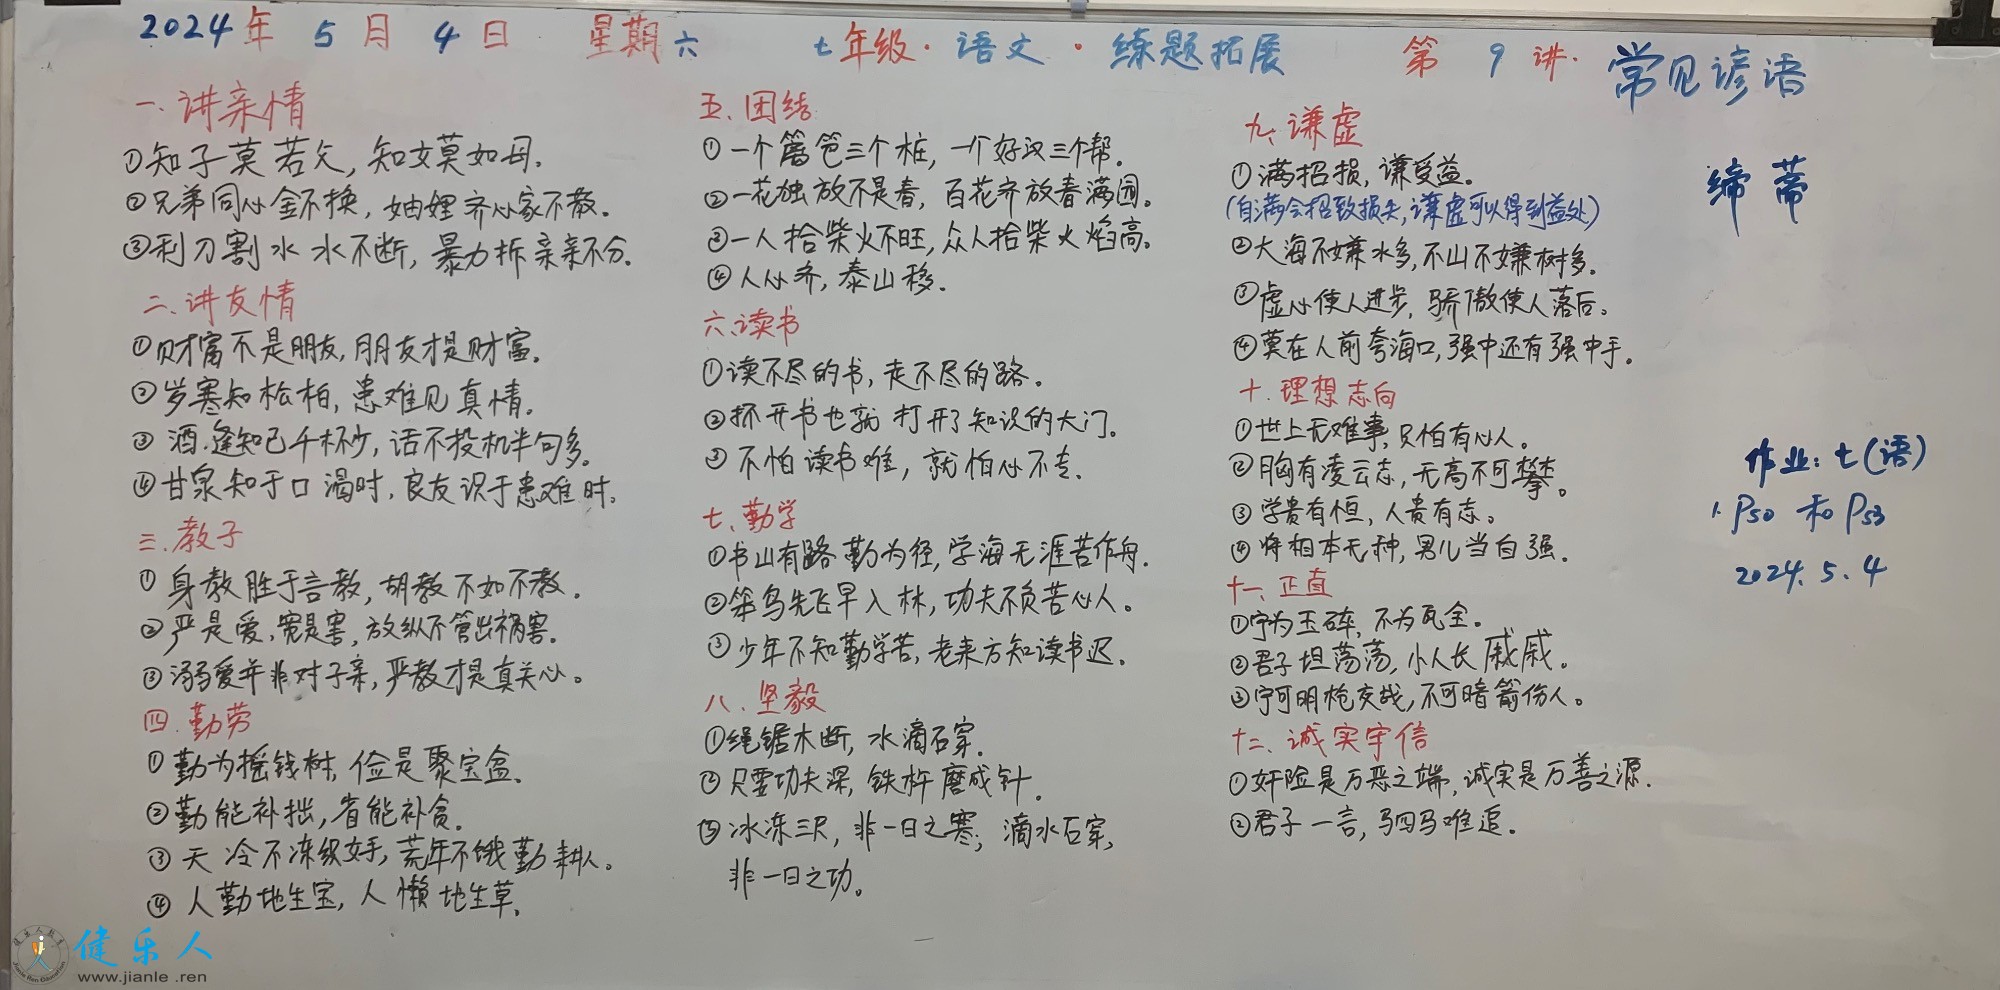 2024年 5月 4日 星期六 七年级·语文·练题拓展 第 9 讲· 常见谚语
一.讲亲情
①知子莫若父，知女莫如母.
②兄弟同心金不换，妯娌齐心家不散.
③利刀割水水不断，暴力拆亲亲不分.
二.讲友情
①财富不是朋友，朋友才是财富.
②岁寒知松柏，患难见真情.
③酒逢知己千杯少，话不投机半句多.
④甘泉知于口渴时，良友识于患难时.
三.教子
①身教胜于言教，胡教不如不教.
②严是爱，宽是害，放纵不管出祸害.
③溺爱并非对子亲，严教才是真关心。
四.勤劳
①勤为摇钱树，俭是聚宝盆.
②勤能补拙，省能补贫.
③天冷不冻织女手，荒年不饿勤耕人。
④人勤地生宝，人懒地生草.
五.团结
①一个篱笆三个桩，一个好汉三个帮.
②一花独放不是春，百花齐放春满园。
③一人拾柴火不旺，众人拾柴火焰高.
④人心齐，泰山移.
六.读书
①读不尽的书，走不尽的路.
②打开了知识的大门.
③不怕读书难，就怕心不专.
七、勤学
①书山有路勤为径，学海无涯苦作舟.
②笨鸟先飞早入林，功夫不负苦心人。
③少年不知勤学苦，老来方知读书迟.
八.坚毅
①绳锯木断，水滴石穿.
②只要功夫深，铁杵磨成针.
③冰冻三尺，非一日之寒；滴水石穿，
非一日之功。
九、谦虚
①满招损，谦受益.
(自满会招致损失，谦虚可以得到益处)
②大海不嫌水多，不山不嫌树多.
③虚心使人进步，骄傲使人落后.
④莫在人前夸海口，强中还有强中手.
十.理想志向
①世上无难事，只怕有心人.
②胸有凌云志，无高不可攀。
③学贵有恒，人贵有志。
④将相本无种，男儿当自强.
十一、正直
①宁为玉碎，不为瓦全.
②君子坦荡荡，小人长戚戚。
③宁可明枪交战，不可暗箭伤人。
十二、诚实守信
①奸险是万恶之端，诚实是万善之源.
②君子一言，驷马难追.
缔 蒂
作业：七(语)
1. P50 和 P53
2024.5.4
健乐人
www.jianle.ren